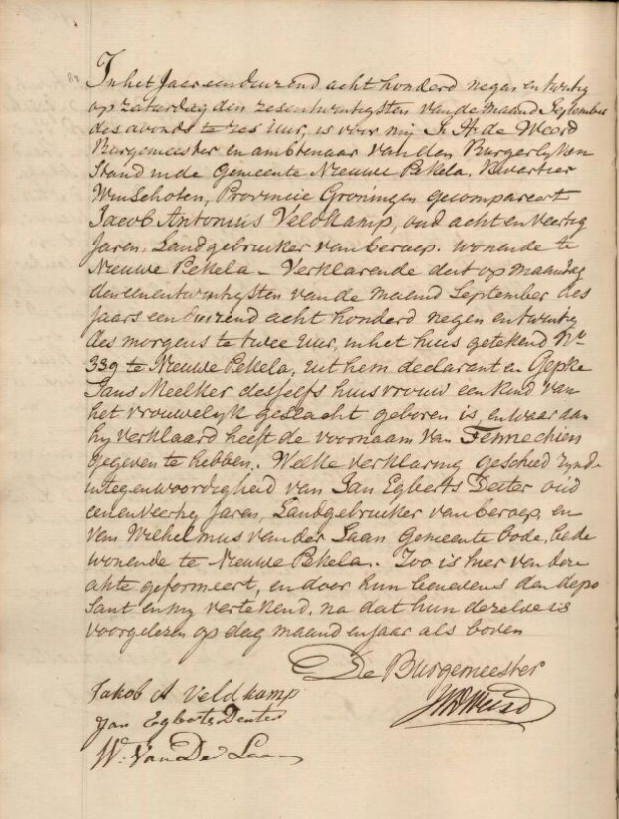 In het Jaar een duizend acht honderd negen en twintig
op zaturdag den zesentwintigsten van de maand September
des avonds te zes Uur, is voor mij J. H. de Weerd
Burgemeester en ambtenaar van den Burgerlyken
Stand in de Gemeente Nieuwe Pekela, Kwartier
Winschoten, Provincie Groningen gecompareert
Jacob Antonius Veldkamp, oud acht en veertig
Jaren, Landgebruiker van beroep, wonende te
Nieuwe Pekela - Verklarende dat op maandag
den een entwintigsten van de maand September des
Jaars een duizend acht honderd negen en twintig
des morgens te twee Uur, in het huis getekend No
339 te Nieuwe Pekela, uit hem declarant en Gepke
Jans Meelker desselfs huisvrouw een kind van
het vrouwelyk geslacht geboren is, en waar aan
hy verklaard heeft de voornaam van Fennechien
gegeven te hebben. Welke verklaring geschied zynde
in tegenwoordigheid van Jan Egberts Deuter oud
een en veertig Jaren, Landgebruiker van beroep, en
van Wilhelmus van der Laan Gemeente bode, beide
wonende te Nieuwe Pekela. Zoo is hier van deze
akte geformeert, en door hun benevens den depo
sant en my vertekend, na dat hun dezelve is
voorgelezen op dag maand en jaar als boven
De Burgemeester
Jakob A Veldkamp
Jan Egberts Deuter
W: Van Der Laan